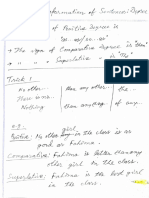 Transformation of Sentence: Degree
of Positive Degree is
"as ... as / so... as"
* The sign of Comparative Degree is "than"
* " " " Superlative " is "the"
Track 1
No other— than any other— the
Nothing than anything of
e.g. girl
Positive: No other in the class is as
good as Fatima.
Comparative: Fatima is better than any
other girl in the class.
Superlative: Fatima is the best girl
in the class.